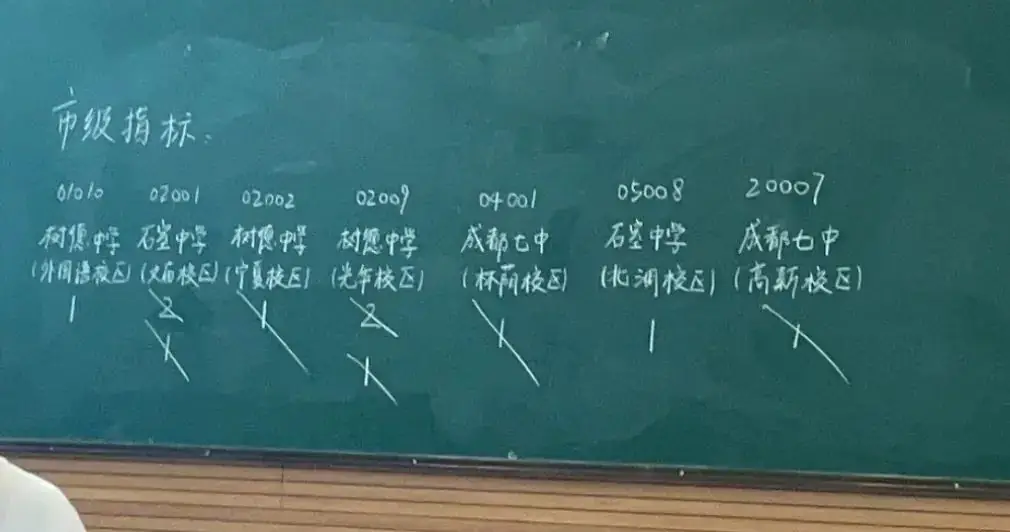 市级指标:
01010 02001 02002 02009 04001 05008 20007
树德中学 石室中学 树德中学 树德中学 成都七中 石室中学 成都七中
(外国语校区) (文庙校区) (宁夏校区) (光华校区) (林荫校区) (北湖校区) (高新校区)
1 2 1 2 1 1 1
1 1